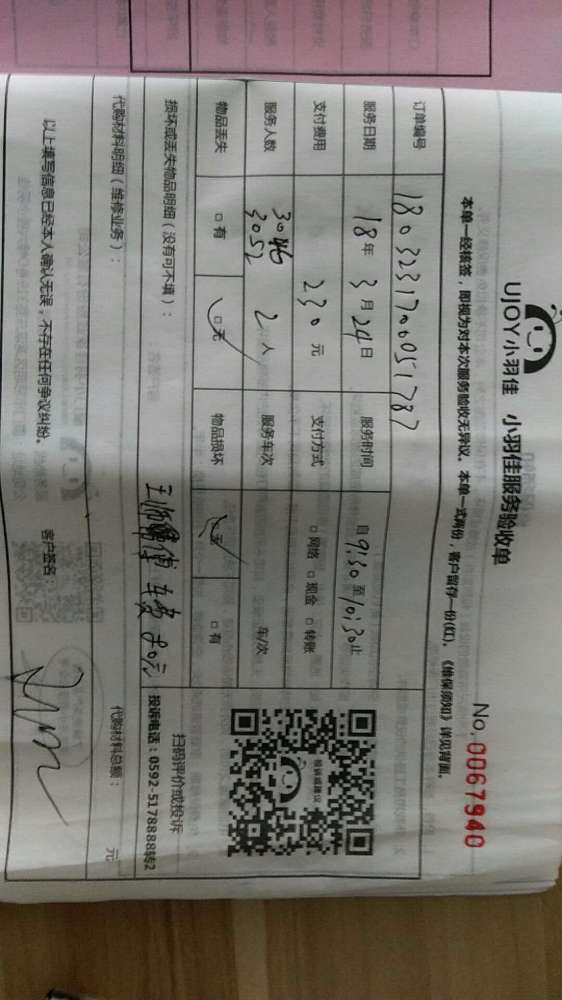 UJOY小羽佳 小羽佳服务验收单
No. 0067940
本单一经核签，即视为对本次服务验收无异议。本单一式两份，客户留存一份(红)。《维保须知》详见背面。
订单编号 1803231700051787
服务日期 18年 3月 24日 服务时间 自 9:30 至 10:30 止
支付费用 230 元 支付方式 □ 网络 □ 现金 □ 转账
服务人数 3046 3052 2 人 服务车次 车/次
物品丢失 □ 有 □ 无 物品损坏 □ 无 □ 有
投诉或建议
扫码评价或投诉
投诉电话：0592-5178888转2
损坏或丢失物品明细（没有可不填）：
代购材料明细（维修业务）： 代购材料总额： 元
以上填写信息已经本人确认无误，不存在任何争议纠纷。 客户签名：